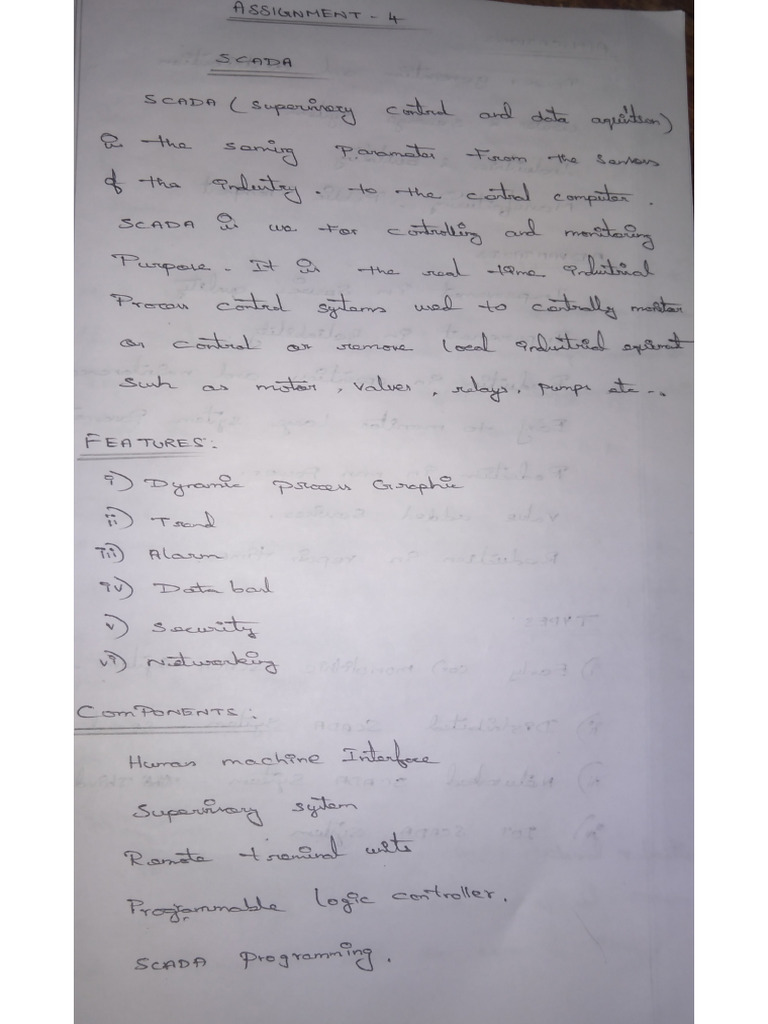 ASSIGNMENT - 4
SCADA
SCADA (Supervisory control and data aquisition)
is the saming Parameter From the Sensors
of the industry. to the control computer.
SCADA is use For controlling and monitoring
Purpose. It is the real time industrial
Process control systems used to centrally monitor
or control or remove local industrial
Such as motor, values, relays, pumps etc -.
FEATURES:
i) Dynamic process Graphic
ii) Trend
iii) Alarm
iv) Data
v) Security
vi) Networking
COMPONENTS:
Human machine Interface
Supervisory system
Remote
Programmable logic controller.
SCADA programming.